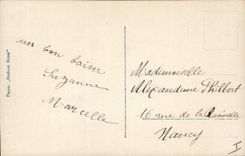 un bon baiser
Suzanne
Marcelle
Mademoiselle
Alexandrine Philbert
16 rue de la
Nancy